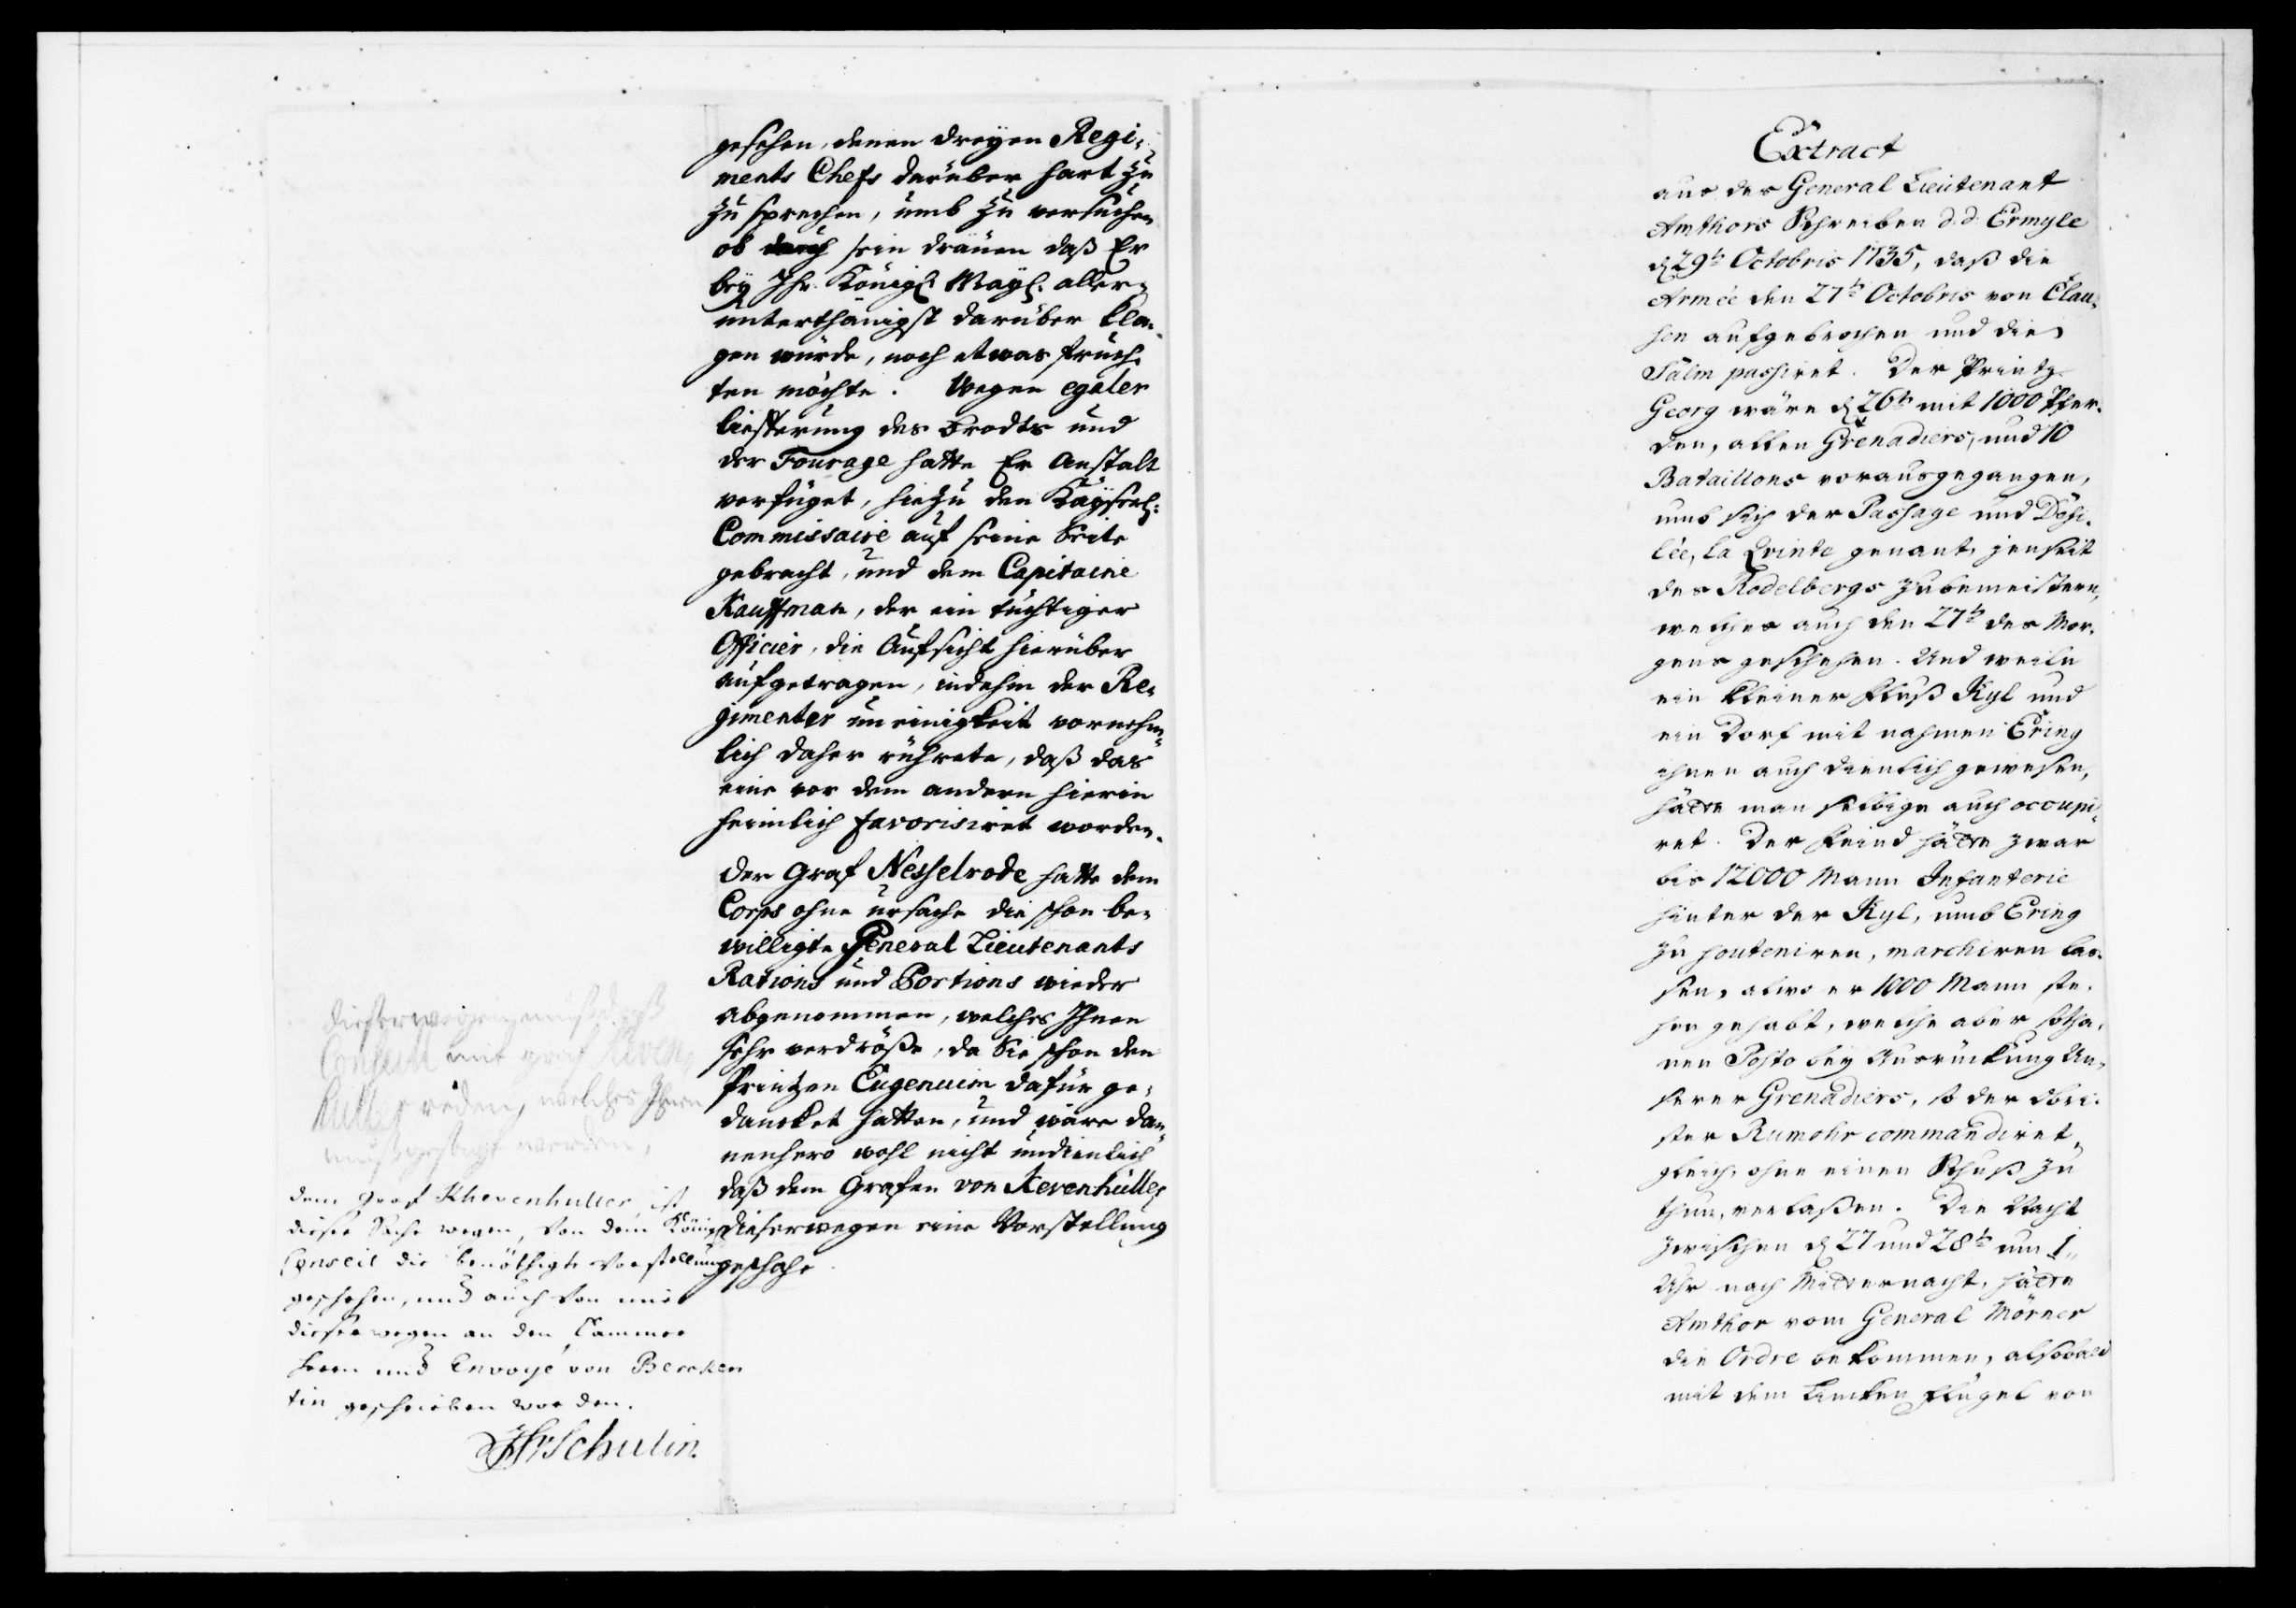 gesehen, denen dreÿen Regi-
ments Chefs darüber hart zu
zu sprechen, umb zu versuchen
ob durch sein dräuen daß Er
beÿ Ihr. Königl Maÿl. aller-
unterthänigst darüber kla-
gen würde, noch etwas fruch-
ten möchte. Wegen egaler
liefferung des Brodts und
der Fourage hatte Er Anstalt
verfüget, hiezu den Kaÿserl:
Commissaire auf seine Seite
gebracht, und dem Capitaine
Kauffman, der ein tüchtiger
Officier, die Aufsicht hierüber
aufgetragen, indehm der Re-
gimenter uneinigkeit vornehm-
lich daher rührete, daß das
eine vor dem andern hierin
heimlich favorisiret worden.
Der Graf Nesselrode hatte dem
Corps ohne ursache die schon be-
willigte General Lieutenants
Rations und Portions wieder
abgenommen, welches Ihnen
sehr verdröße, da Sie schon den
Printzen Eugenium dafür ge-
dancket hatten, und wäre dan-
nenhero wohl nicht undienlich
daß dem Grafen von Kevenhüller
dieserwegen eine Vorstellung
geschehe.
dieserwegen muß daß
Conseill mit graf Keven-
huller reden, welches Ihnen
muß gesagt werden,
dem Graf Khevenhuller, ist
dieser Sache wegen, von dem König
Conseil die benöthigte vorstellung
geschehen, und auch von mir
dieserwegen an den Cammer
herrn und Envoyé von Bercken
tin geschrieben worden.
JHrSchulin.
Extract
aus des General Lieutenant
Amthors Schreiben d. d. Ermyle
d 29t Octobris 1735, daß die
Armée den 27t Octobris von Clau-
sen aufgebrochen und die
Salm passiret. Der Printz
Georg wäre d 26t mit 1000 Pfer-
den, allen Grenadiers, und 10
Bataillons vorausgegangen,
umb sich der Passage und Defi-
lée, la Quinte genant, jenseit
des Rodelbergs zubemeistern,
welches auch den 27t des Mor-
gens geschehen. Und weiln
ein kleiner Fluß Kyl und
ein Dorf mit nahmen Ering
ihnen auch dienlich gewesen,
hätte man selbige auch occupi-
ret. Der Feind hätte zwar
bis 12000 Mann Infanterie
hinter der Kyl, umb Ering
zu souteniren, marchiren las-
sen, alwo er 1000 Mann ste-
hen gehabt, welche aber sotha-
nen Posto beÿ Ausrückung Un-
serer Grenadiers, so der Obri-
ster Rumohr commandiret,
gleich, ohne einen Schuß zu
thun, verlaßen. Die Nacht
zwischen d 27 und 28t um 1
Uhr nach Mitternacht, hätte
Amthor vom General Mörner
die Ordre bekommen, alsobald
mit dem Lincken Flügel von